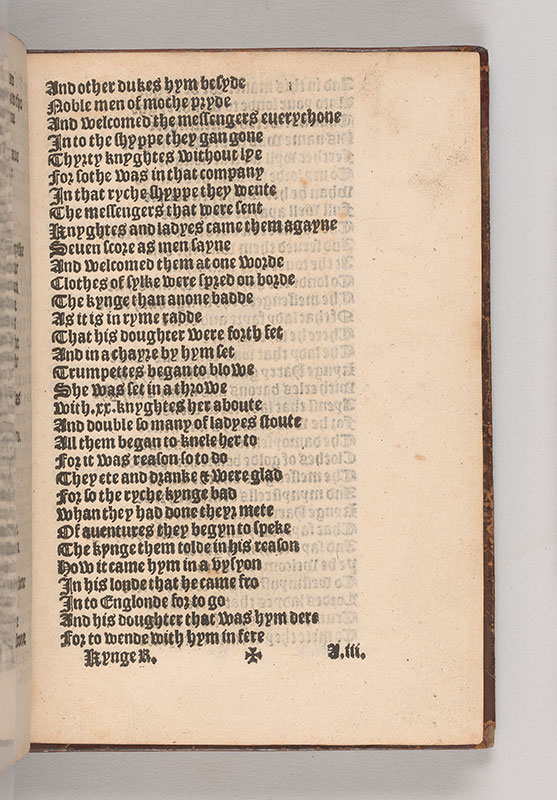 And other dukes hym besyde
Noble men of moche pryde
And welcomed the messengers euerychone
In to the shyppe they gan gone
Thyrty knyghtes without lye
For sothe was in that company
In that ryche shyppe they wente
The messengers that were sent
Knyghtes and ladyes came them agayne
Seuen score as men sayne
And welcomed them at one worde
Clothes of sylke were spred on borde
The kynge than anone badde
As it is in ryme radde
That his doughter were forth fet
And in a chayre by hym set
Trumpettes began to blowe
She was set in a throwe
with .xx. knyghtes her aboute
And double so many of ladyes stoute
All them began to knele her to
For it was reason so to do
They ete and dranke & were glad
For so the ryche kynge bad
whan they had done theyr mete
Of auentures they begyn to speke
The kynge them tolde in his reason
How it came hym in a vysyon
In his londe that he came fro
In to Englonde for to go
And his doughter that was hym dere
For to wende with hym in fere
Kynge R. ✠ A.iii.